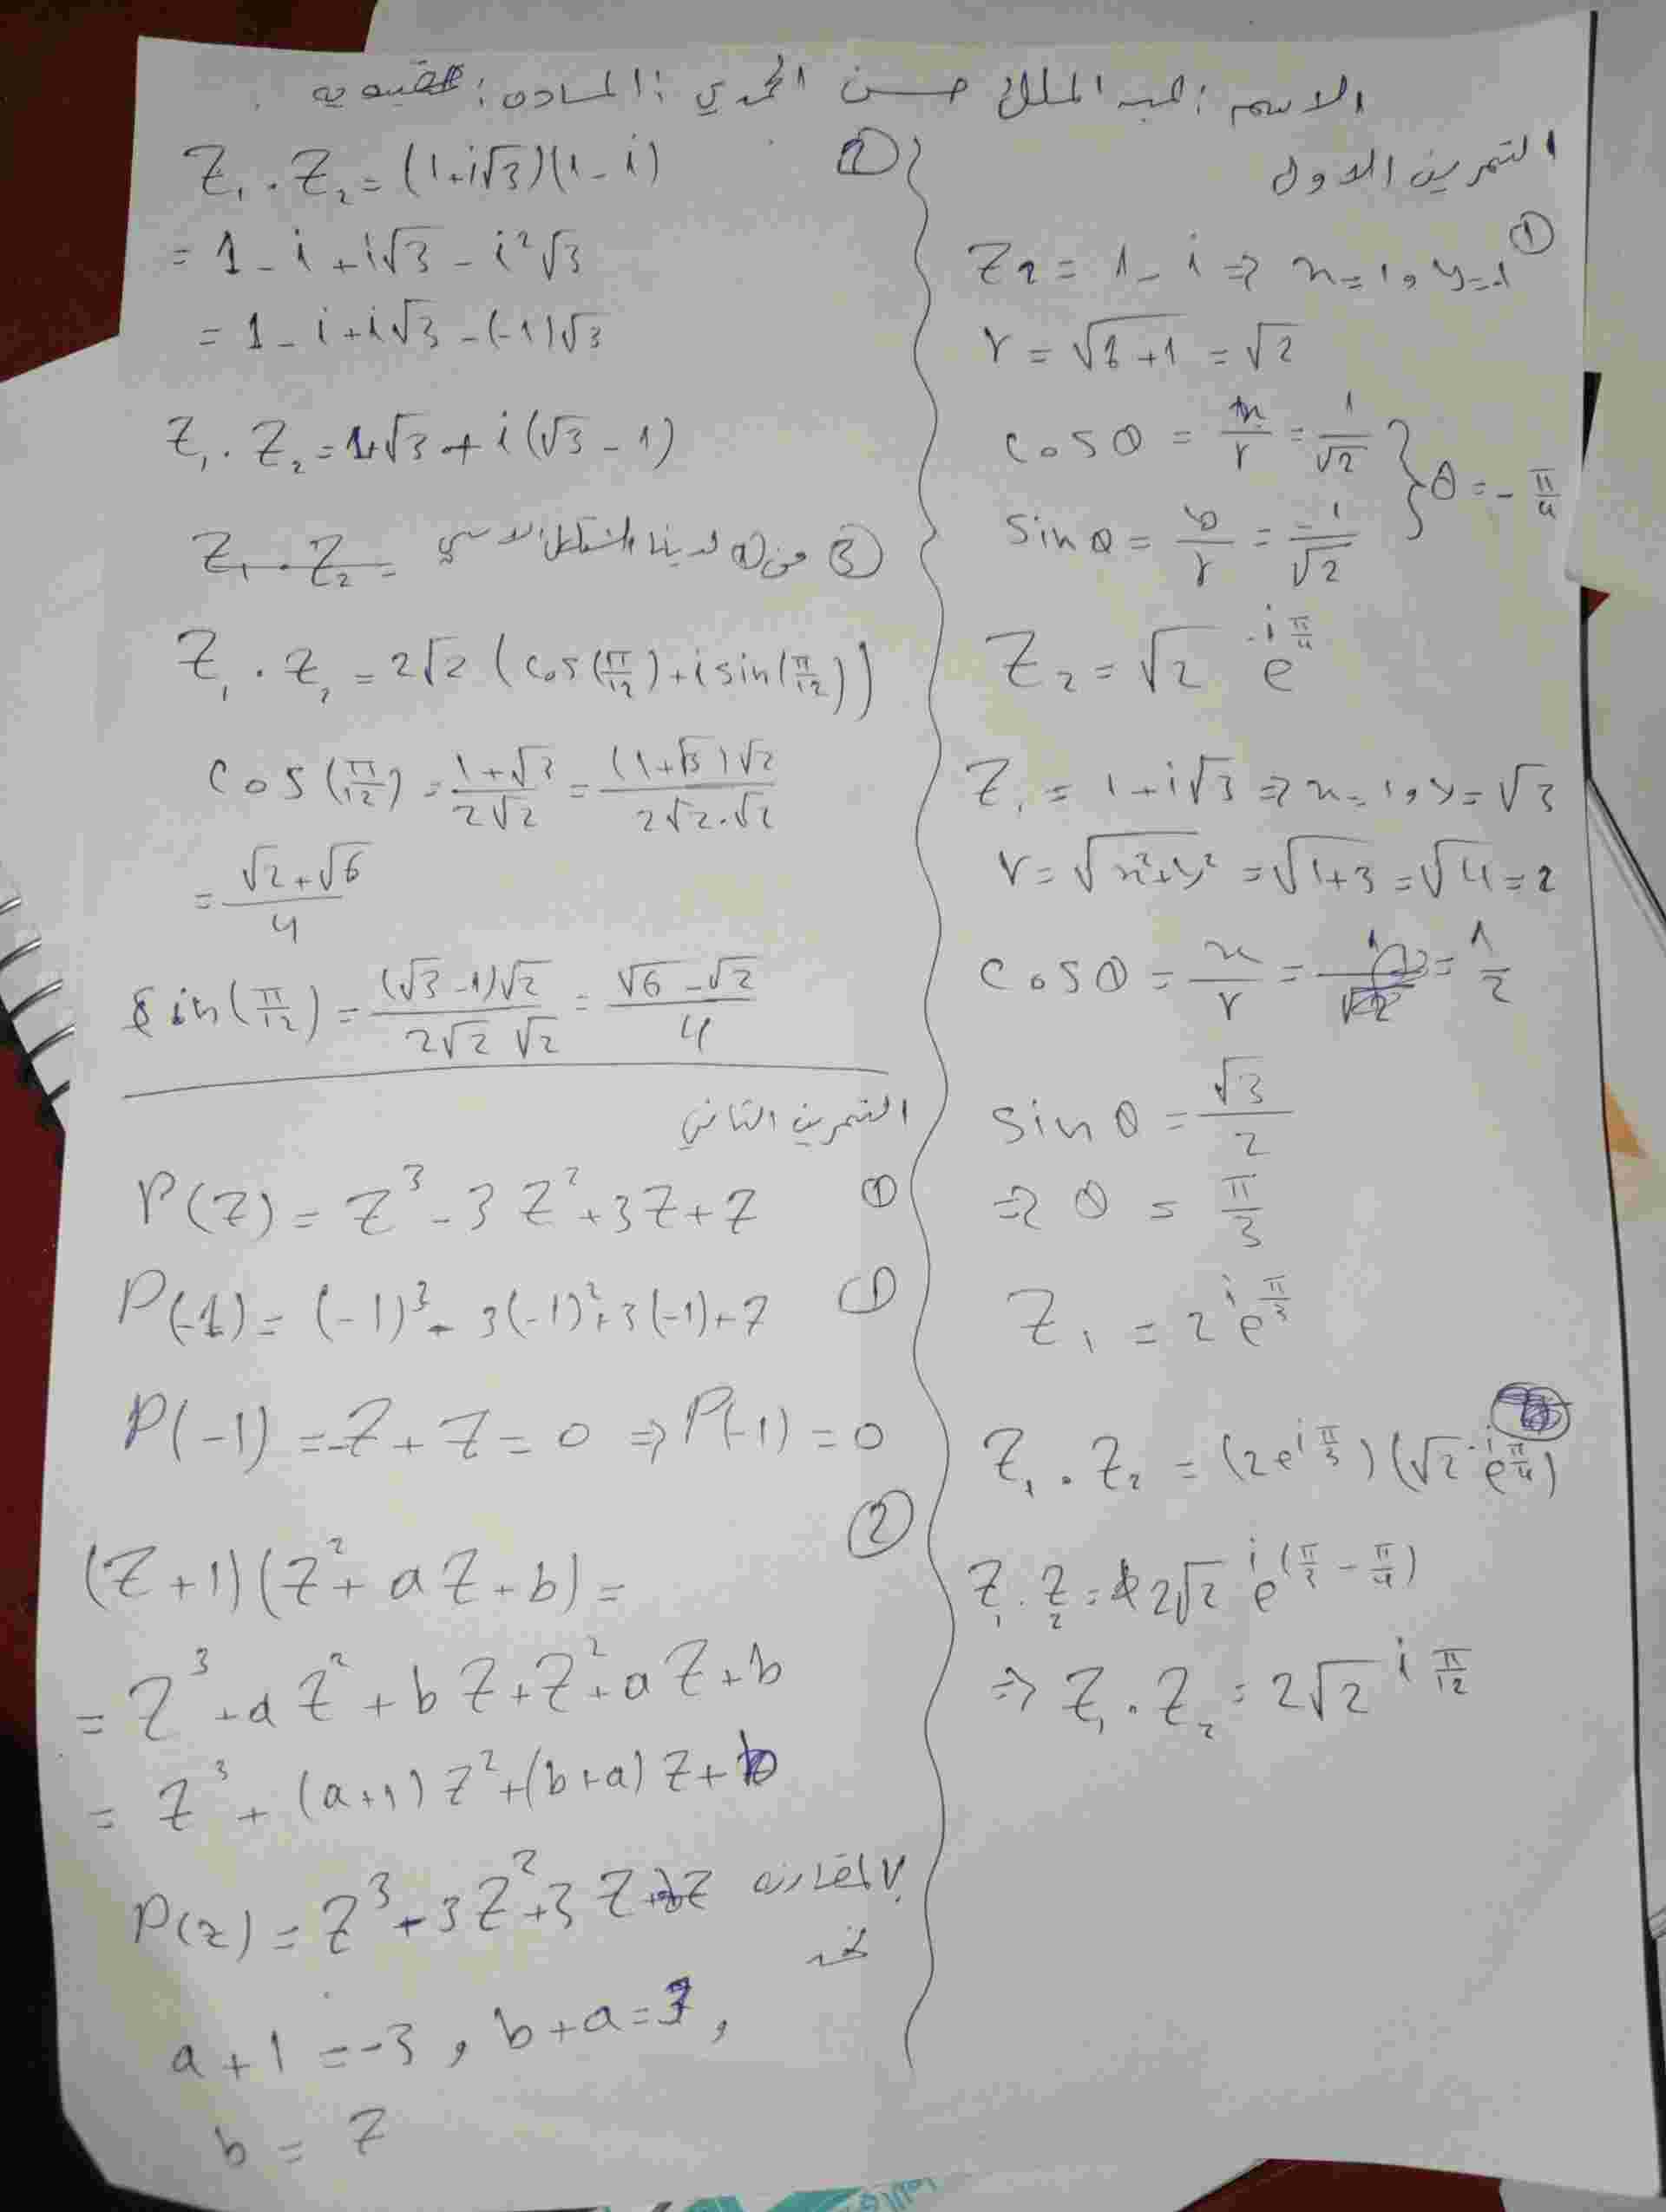 الاسم : عبد الملك حسن المحمدي : المادة :
التمرين الاول
①
Z2 = 1 - i ⇒ x = 1 , y = -1
r = √1+1 = √2
cos θ = x/r = 1/√2
sin θ = b/r = -1/√2 } θ = - π/4
Z2 = √2 e^-iπ/4
Z1 = 1 + i√3 ⇒ x = 1 , y = √3
r = √x²+y² = √1+3 = √4 = 2
cos θ = x/r = 1/2
sin θ = √3/2
⇒ θ = π/3
Z1 = 2 e^iπ/3
Z1 . Z2 = (2e^iπ/3)(√2 e^-iπ/4)
Z1 . Z2 = 2√2 e^i(π/3 - π/4)
⇒ Z1 . Z2 = 2√2 ^iπ/12
②
Z1 . Z2 = (1+i√3)(1-i)
= 1 - i + i√3 - i²√3
= 1 - i + i√3 - (-1)√3
Z1 . Z2 = 1+√3 + i(√3 - 1)
③ من ① لدينا الشكل الاسي
Z1 . Z2 =
Z1 . Z2 = 2√2 (cos(π/12) + i sin(π/12))
cos(π/12) = 1+√3/2√2 = (1+√3)√2/2√2.√2
= √2+√6/4
sin(π/12) = (√3-1)√2/2√2 √2 = √6-√2/4
التمرين الثاني
① P(Z) = Z³ - 3Z² + 3Z + 7
① P(-1) = (-1)³ - 3(-1)² + 3(-1) + 7
P(-1) = -7 + 7 = 0 ⇒ P(-1) = 0
②
(Z+1)(Z² + aZ + b) =
= Z³ + aZ² + bZ + Z² + aZ + b
= Z³ + (a+1)Z² + (b+a)Z + b
بالمقارنه
P(z) = Z³ - 3Z² + 3Z + 7
نجد
a + 1 = -3 , b + a = 3 ,
b = 7